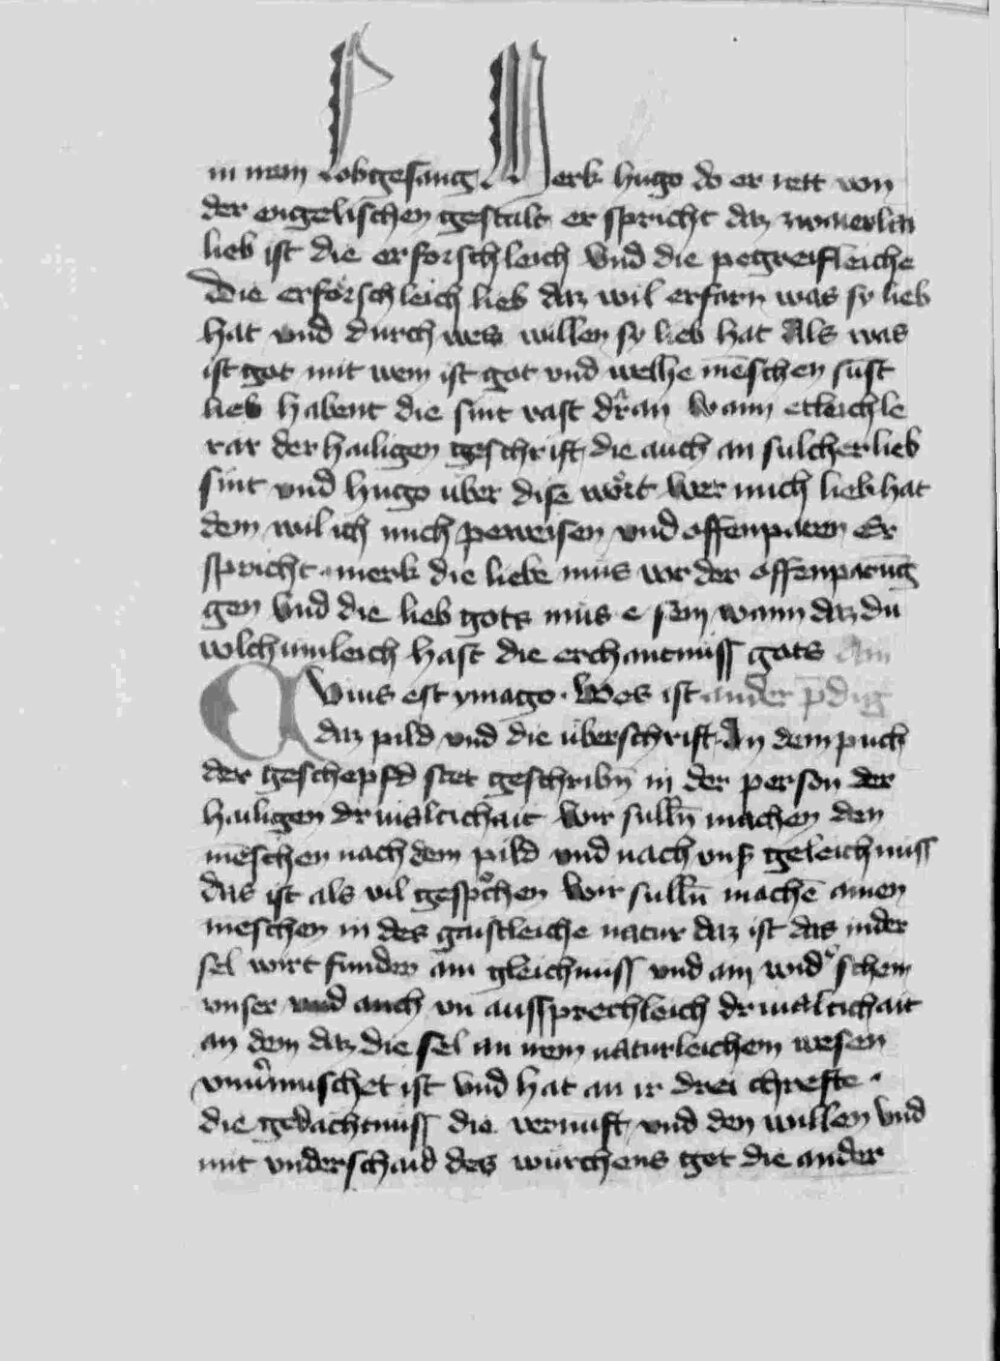 in irem Lobgesang Merk hugo do er rett von
der engelischen gestalt er spricht daz zwaierlai
lieb ist die erforschleich vnd die pegreifleiche
Die erforschleich lieb daz wil erfarn was sy lieb
hat vnd durch wes willen sy lieb hat Als was
ist got mit wem ist got vnd welhe mēschen sust
lieb habent die sint vast dran wann etleich le
rar der hailigen geschrift die auch an sulcher lieb
sint vnd hugo über dise wort wer mich lieb hat
dem wil ich mich peweisen vnd offenparen Er
spricht merk die liebe mus vor der offenparūg
gen vnd die lieb gots mus e sein wann daz du
volchumleich hast die erchantnuss gots Am
Cvius est ymago . Wes ist ander p̄dig
daz pild vnd die überschrift . In dem puch
der geschepfd stet geschribn̄ in der person der
hailigen driualtichait wir sulln̄ machen den
mēschen nach dem pild vnd nach vnß geleichnuss
das ist als vil gespͦchen wir sulln̄ machē ainen
meschen in des gaistleiche natur daz ist das in der
sel wirt funden ain gleichnuss vnd ain widerschein
vnser vnd auch vn aussprechleich driualtichait
an dem daz die sel in irem naturleichem wesen
vnu̾muschet ist vnd hat an ir drei chrefte .
die gedachtnuss die vernuft vnd den willen vnd
mit vnderschaid des würchens get die ander